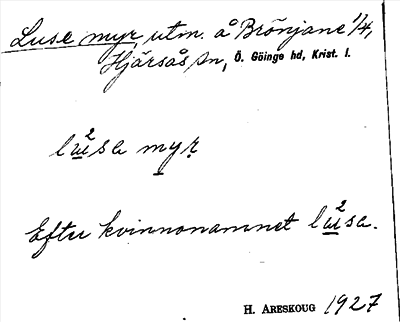 Luse myr, utm. å Brönjane 1/4,
Hjärsås sn, Ö. Göinge hd, Krist. l.
lu²sa myr
Efter kvinnonamnet lu²sa.
H. ARESKOUG 1927